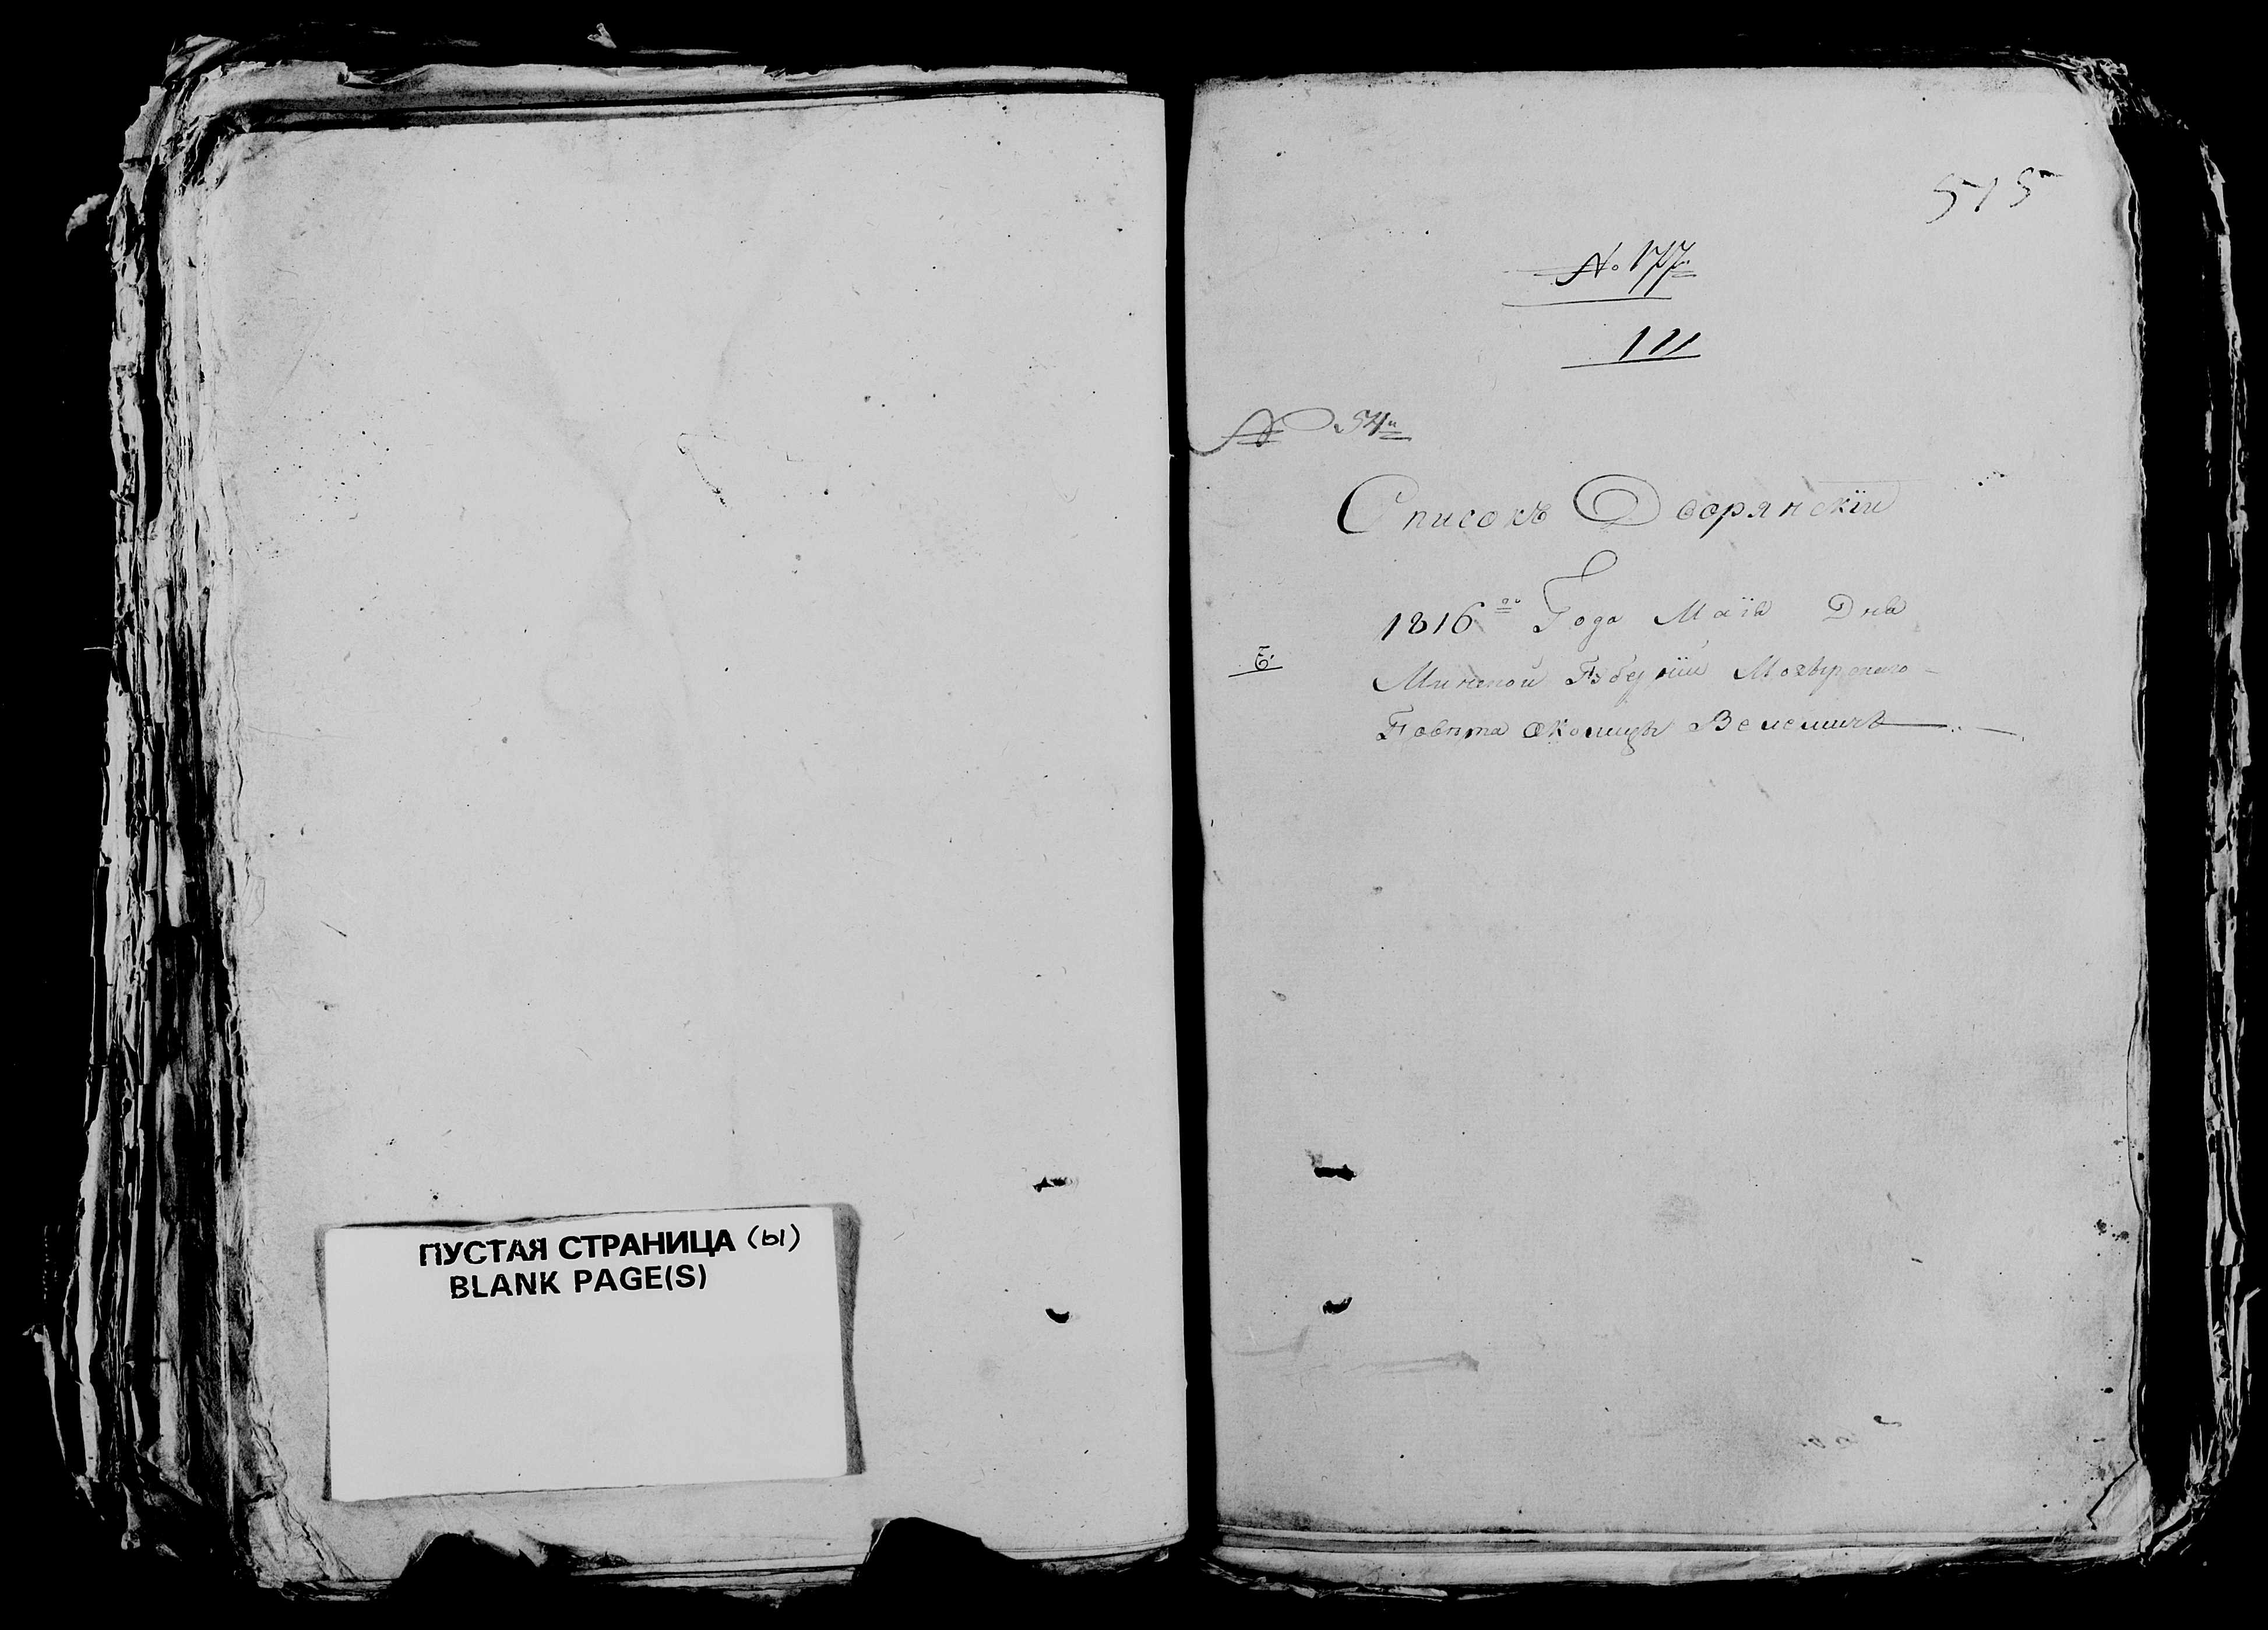 ПУСТАЯ СТРАНИЦА (ы)
BLANK PAGE(S)
515
№ 177.
111
№ 54й
Списокъ Дворянскїи
1816го Года Маїя Дня
Минской Губернїи Мозырского
Повѣта Околицы Велемичь